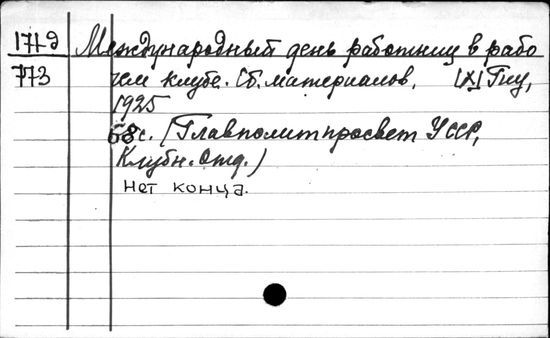 1719 Международный день работниц в рабо
773 чем клубе. Сб. материалов. [Х] Гиу,
1925
68с. (Главполитпросвет УССР,
Клубн. Отд.)
нет конца.